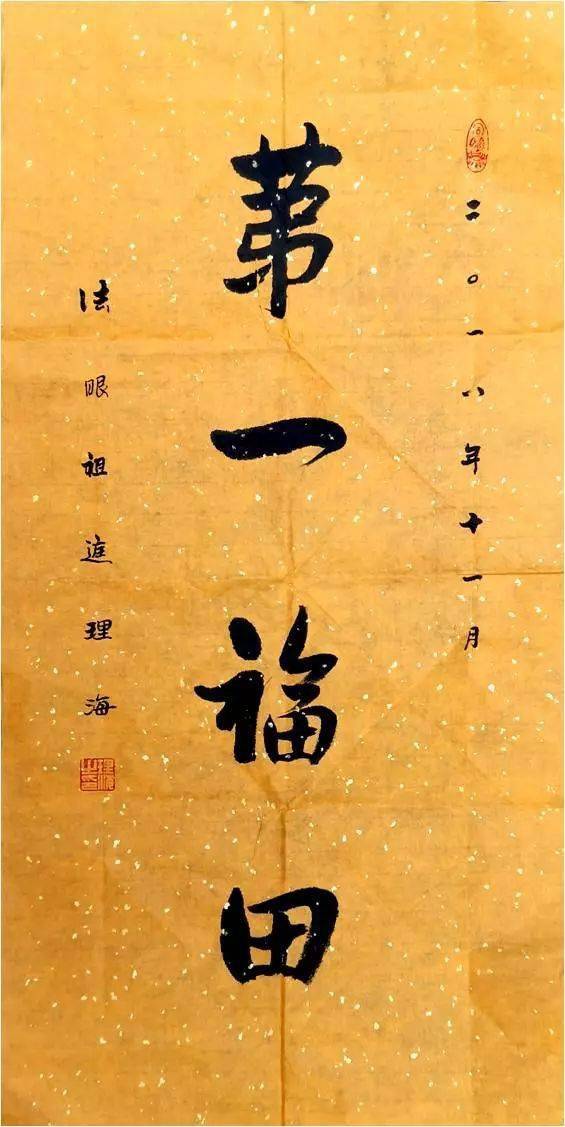 二〇一八年十一月
第一福田
法眼祖庭理海